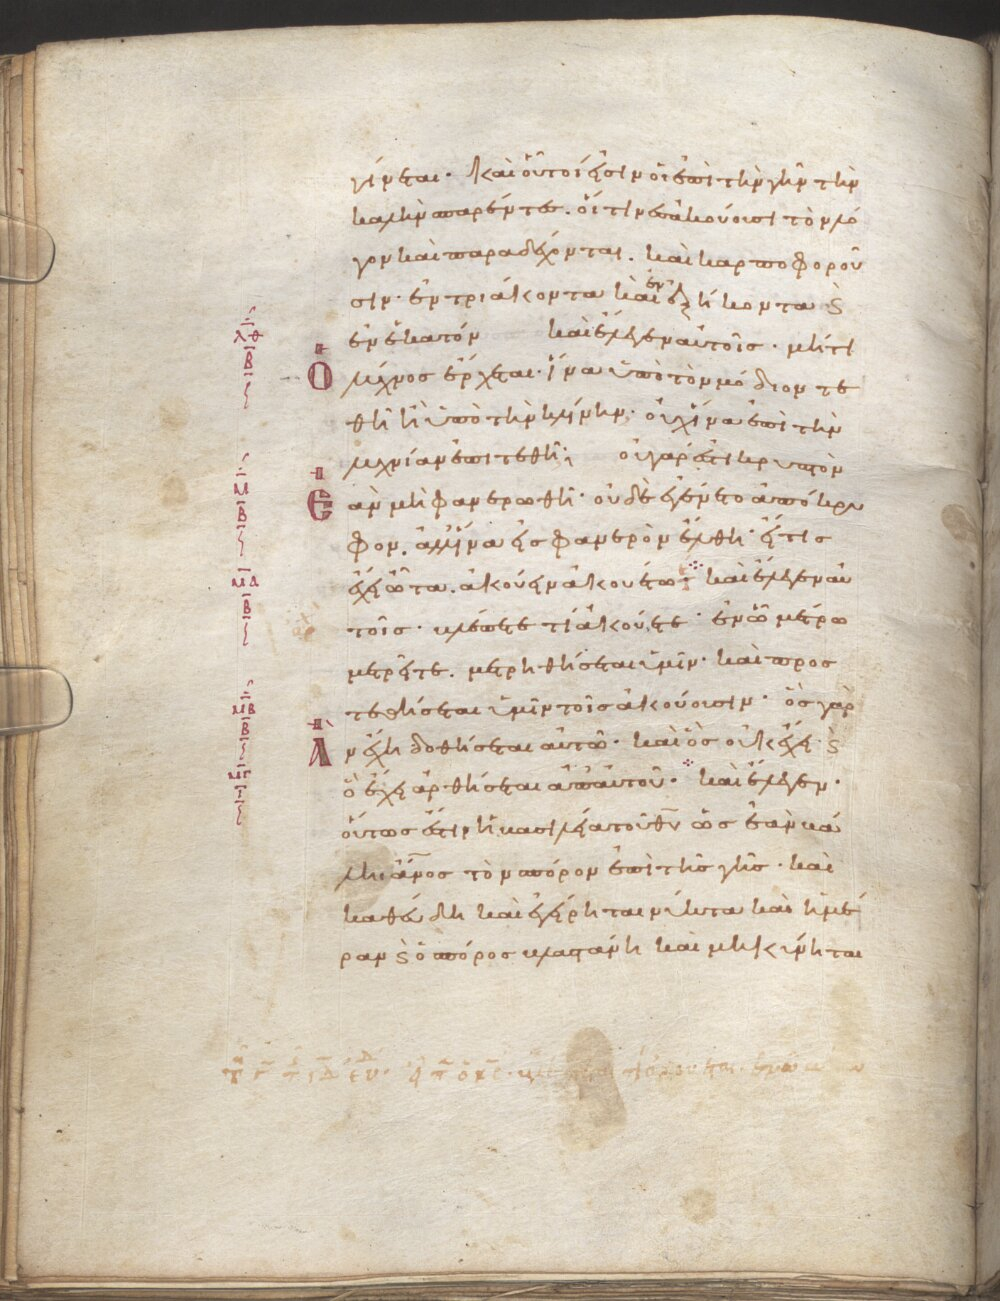 γίνεται· Καὶ οὗτοί εἰσιν οἱ ἐπὶ τὴν γῆν τὴν
καλὴν σπαρέντες. οἵτινες ἀκούουσι τὸν λό
γον καὶ παραδέχονται. καὶ καρποφοροῦ
σιν· ἐν τριάκοντα καὶ ἐν ἑξήκοντα ϗ
ἐν ἑκατόν καὶ ἔλεγεν αὐτοῖς· μήτι
λθ
Β
Ὁ λύχνος ἔρχεται· ἵνα ὑπὸ τὸν μόδιον τε
θῆ ἢ ὑπὸ τὴν κλίνην· οὐχ ἵνα ἐπὶ τὴν
λυχνίαν ἐπιτεθῆ; οὐ γάρ ἐστι κρυπτὸν
Μ
Β
Ἐ ὰν μὴ φανερωθῆ· οὐδὲ ἐγένετο ἀπόκρυ
φον. ἀλλ' ἵνα εἰς φανερὸν ἔλθη· εἴ τις
ΜΑ
Β
ἔχει ὦτα. ἀκούειν ἀκουέτω: καὶ ἔλεγεν αὐ
τοῖς· βλέπετε τί ἀκούετε· ἐν ᾧ μέτρω
μετρεῖτε. μετρηθήσεται ὑμῖν· καὶ προσ
τεθήσεται ὑμῖν τοῖς ἀκούουσιν· ὃς γὰρ
ΜΒ
Β
Ἂ ν ἔχη δοθήσεται αὐτῶ· καὶ ὃς οὐκ ἔχει· ϗ
ΜΓ
Ι
ὃ ἔχει ἀρθήσεται ἀπ' αὐτοῦ· καὶ ἔλεγεν·
οὕτως ἐστὶν ἡ βασιλεία τοῦ θυ ὡς ἐὰν βά
λη ἄνος τὸν σπόρον ἐπὶ τῆς γῆς· καὶ
καθεύδη καὶ ἐγείρηται νύκτα καὶ ἡμέ
ραν ϗ ὁ σπόρος βλαστάνη καὶ μηκύνηται